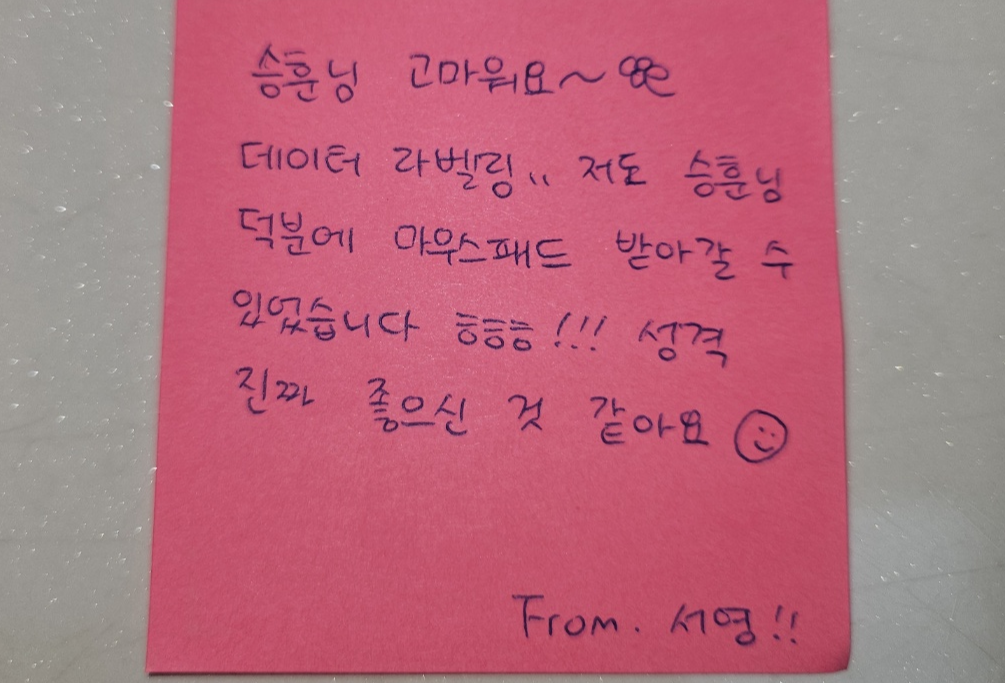 승훈닝 고마워요~
데이터 라벨링.. 저도 승훈닝
덕분에 마우스패드 받아갈 수
있었습니다 흐흐흐!!! 성격
진짜 좋으신 것 같아요
From. 서영!!